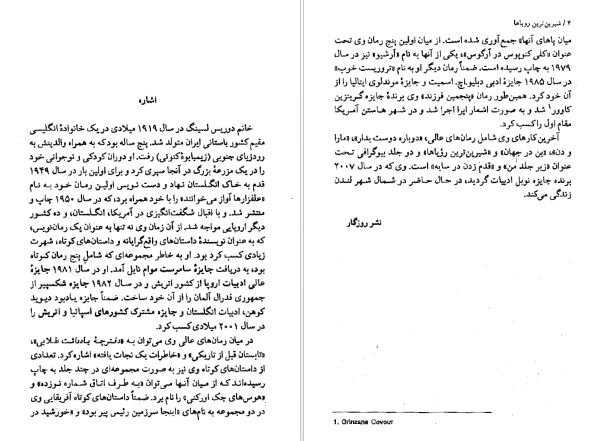 اشاره
خانم دوریس لسینگ در سال ۱۹۱۹ میلادی در یک خانوادهٔ انگلیسی
مقیم کشور باستانی ایران متولد شد. پنج ساله بود که به همراه والدینش به
رودزیای جنوبی (زیمبابوهٔ کنونی) رفت. او دوران کودکی و نوجوانی خود
را در یک مزرعهٔ بزرگ در آنجا سپری کرد و برای اولین بار در سال ۱۹۴۹
قدم به خاک انگلستان نهاد و دست نویس اولین رمان خود به نام
«علفزارها آواز می‌خوانند» را با خود همراه برد، که در سال ۱۹۵۰ چاپ و
منتشر شد. و با اقبال شگفت‌انگیزی در آمریکا، انگلستان، و ده کشور
دیگر اروپایی مواجه شد. از آن زمان وی نه تنها به عنوان یک رمان‌نویس،
که به عنوان نویسندهٔ داستان‌های واقع‌گرایانه و داستان‌های کوتاه، شهرت
زیادی کسب کرد بود. او به خاطر مجموعه‌ای که شامل پنج رمان کوتاه
بود، به دریافت جایزهٔ سامرست موام نایل آمد. او در سال ۱۹۸۱ جایزهٔ
عالی ادبیات اروپا از کشور اتریش و در سال ۱۹۸۲ جایزه شکسپیر از
جمهوری فدرال آلمان را از آن خود ساخت. ضمناً جایزه یادبود دیوید
کوهن، ادبیات انگلستان و جایزه مشترک کشورهای اسپانیا و اتریش را
در سال ۲۰۰۱ میلادی کسب کرد.
در میان رمان‌های عالی وی می‌توان به «دفترچهٔ یادداشت طلایی»،
«تابستان قبل از تاریکی» و «خاطرات یک نجات یافته» اشاره کرد. تعدادی
از داستان‌های کوتاه وی نیز به صورت مجموعه‌ای در چند جلد به چاپ
رسیده‌اند که از میان آنها می‌توان «به طرف اتاق شماره نوزده» و
«هوس‌های جک اورکنی» را نام برد. ضمناً داستان‌های کوتاه آفریقایی وی
در دو مجموعه به نام‌های «اینجا سرزمین رئیس پیر بود» و «خورشید در
۴ / شیرین‌ترین رویاها
میان پاهای آنها» جمع‌آوری شده است. از میان اولین پنج رمان وی تحت
عنوان «کلی کنوپوس در آرگوس»، یکی از آنها به نام «آرشیو» نیز در سال
۱۹۷۹ به چاپ رسیده است. ضمناً رمان دیگر او به نام «تروریست خوب»
در سال ۱۹۸۵ جایزه ادبی دبلیو.اچ. اسمیت و جایزهٔ موندلوی ایتالیا را از
آن خود کرد. همین‌طور رمان «پنجمین فرزند» وی برندهٔ جایزه گرینزین
کاوور۱ شد و به صورت اشعار اپرا اجرا شد و در شهر هاستن آمریکا
مقام اول را کسب کرد.
آخرین کارهای وی شامل رمان‌های عالی، «دوباره دوست بدار»، «مارا
و دن»، «بن در جهان» و «شیرین‌ترین رؤیاها» و در جلد بیوگرافی تحت
عنوان «زیر جلد من» و «قدم زدن در سایه» است. وی که در سال ۲۰۰۷
برنده جایزه نوبل ادبیات گردید، در حال حاضر در شمال شهر لندن
زندگی می‌کند.
نشر روزگار
1. Grinzane Cavour